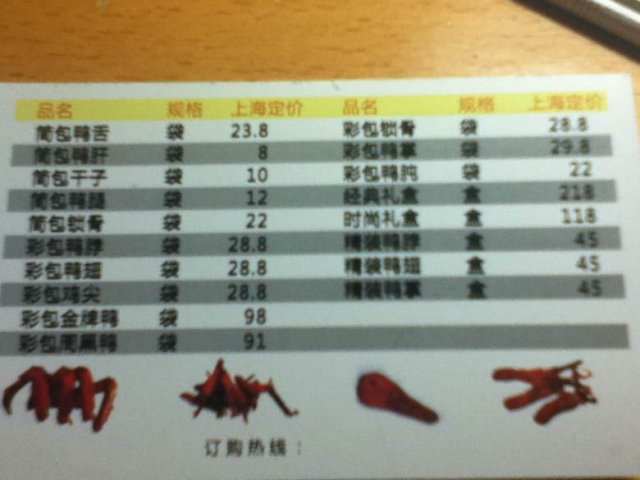 品名 规格 上海定价 品名 规格 上海定价
简包鸭舌 袋 23.8 彩包锁骨 袋 28.8
简包鸭肝 袋 8 彩包鸭掌 袋 29.8
简包干子 袋 10 彩包鸭肫 袋 22
简包鸭腿 袋 12 经典礼盒 盒 218
简包锁骨 袋 22 时尚礼盒 盒 118
彩包鸭脖 袋 28.8 精装鸭脖 盒 45
彩包鸭翅 袋 28.8 精装鸭翅 盒 45
彩包鸡尖 袋 28.8 精装鸭掌 盒 45
彩包金牌鸭 袋 98
彩包周黑鸭 袋 91
订购热线：